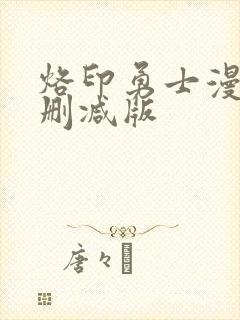 烙印勇士漫
删减版
唐々